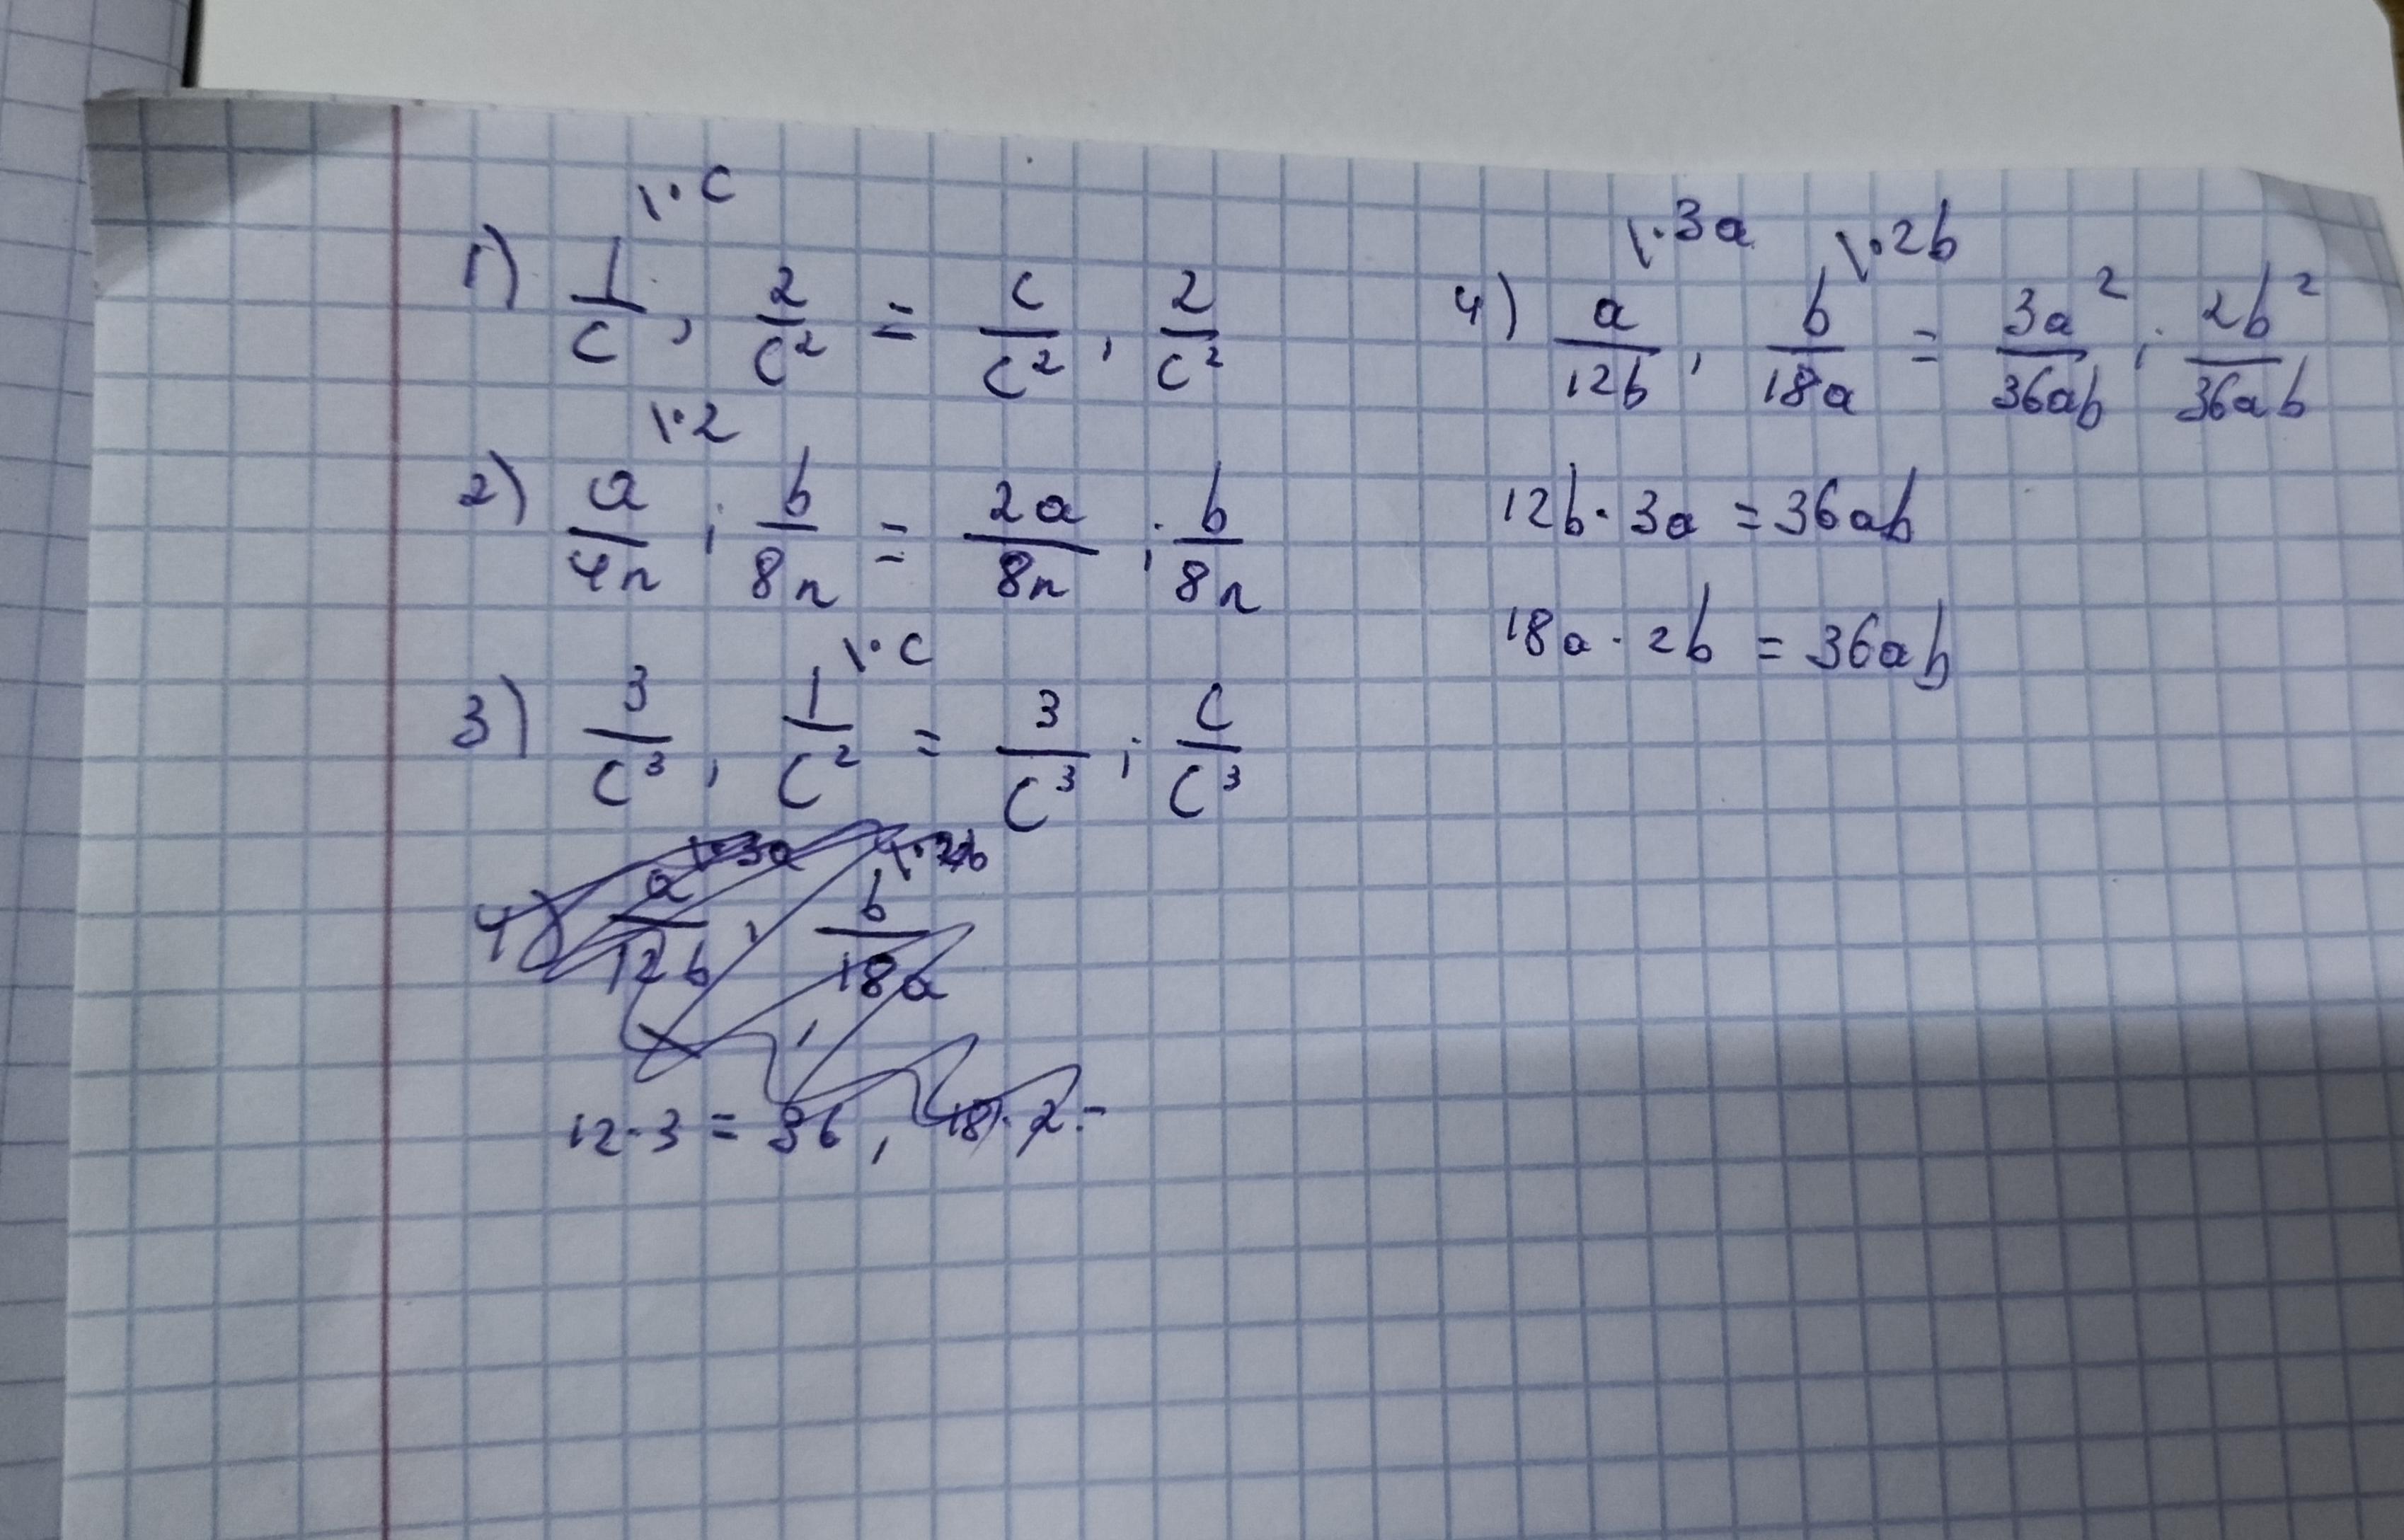 \·c
1) 1/c, 2/c² = c/c², 2/c²
\·2
2) a/4n ; b/8n = 2a/8n ; b/8n
\·c
3) 3/c³, 1/c² = 3/c³ ; c/c³
\·3a \·2b
4) a/12b, b/18a
12·3 = 36, 18·2=
\·3a \·2b
4) a/12b, b/18a = 3a²/36ab ; 2b²/36ab
12b·3a = 36ab
18a·2b = 36ab